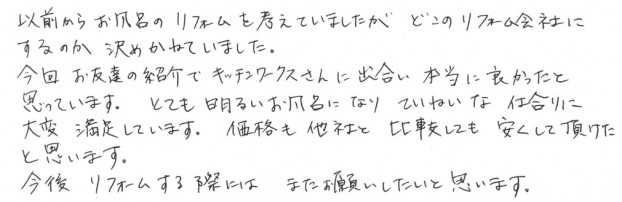 以前からお風呂のリフォームを考えていましたが どこのリフォーム会社に
するのか 決めかねていました。
今回 お友達の紹介で キッチンワークスさんに出合い 本当に良かったと
思っています。 とても明るいお風呂になり ていねいな 仕上りに
大変 満足しています。 価格も 他社と 比較しても 安くして頂けた
と思います。
今後 リフォームする際には またお願いしたいと思います。